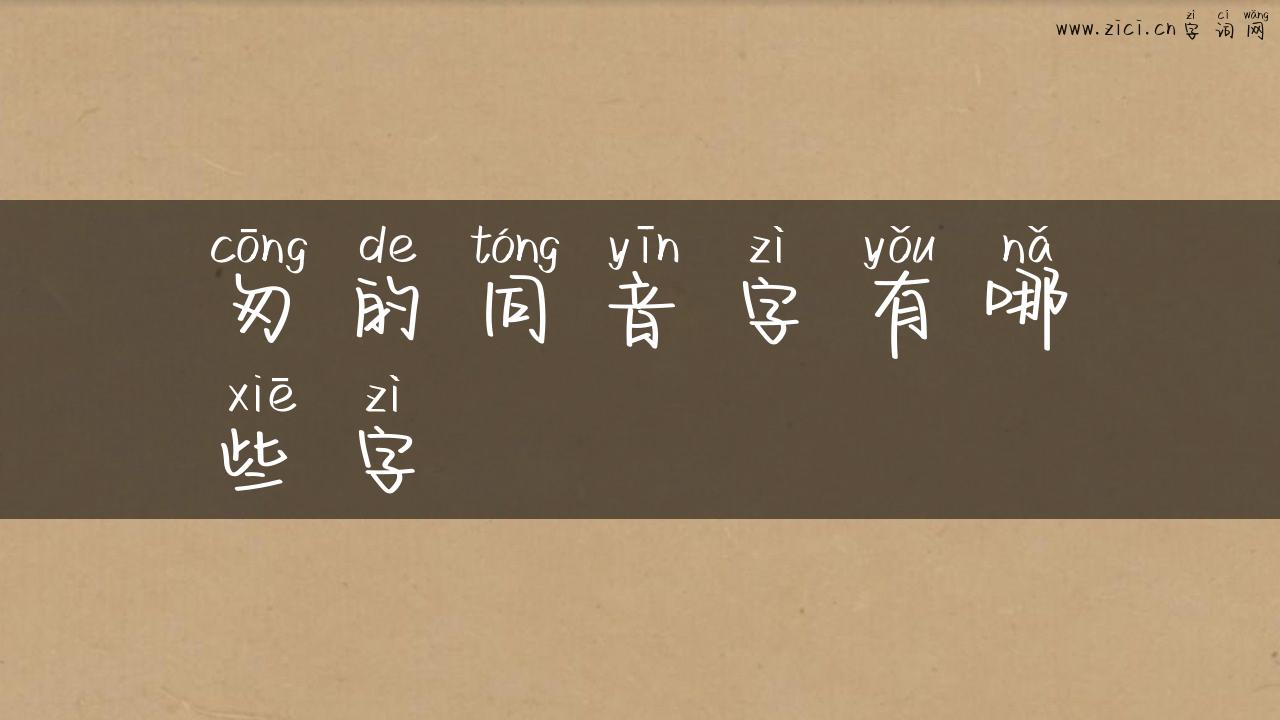 zì cí wǎng
www.zici.cn字词网
cōng de tóng yīn zì yǒu nǎ
匆的同音字有哪
xiē zì
些字